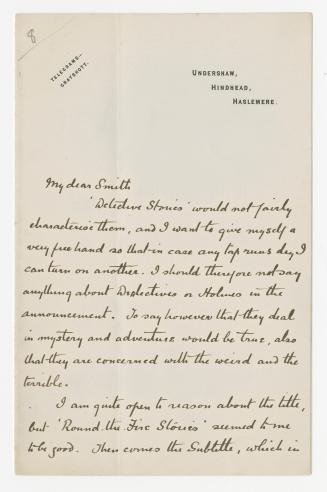 8
TELEGRAMS:—
GRAYSHOTT.
UNDERSHAW,
HINDHEAD,
HASLEMERE.
My dear Smith
'Detective Stories' would not fairly
characterise them, and I want to give myself a
very free hand so that in case any tap runs dry I
can turn on another. I should therefore not say
anything about Detectives or Holmes in the
announcement. To say however that they deal
in mystery and adventure would be true, also
that they are concerned with the weird and the
terrible.
I am quite open to reason about the title,
but 'Round the Fire Stories' seemed to me
to be good. Then comes the Subtitle, which in